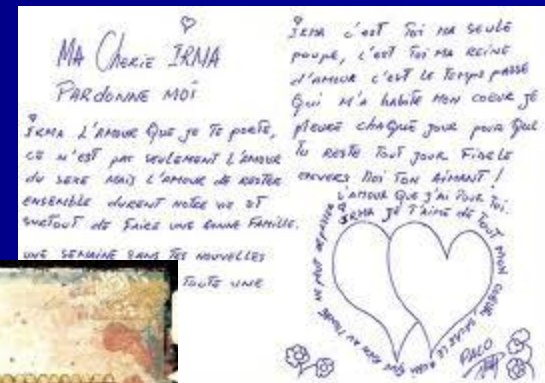 MA CHERIE IRMA
PARDONNE MOI
IRMA L'AMOUR QUE JE TE PORTE,
CE N'EST PAS SEULEMENT L'AMOUR
DU SEXE MAIS L'AMOUR DE RESTER
ENSEMBLE DURENT NOTRE VIE ET
SURTOUT DE FAIRE UNE BONNE FAMILLE.
UNE SEMAINE SANS TES NOUVELLES
TOUTE UNE
IRMA C'EST TOI MA SEULE
POUPE, C'EST TOI MA REINE
D'AMOUR C'EST LE TEMPS PASSÉ
QUI M'A HABITE MON COEUR JE
PLEURE CHAQUE JOUR POUR QUE
TU RESTE TOUT JOUR FIDELE
ENVERS MOI TON AIMANT!
L'AMOUR QUE J'AI POUR TOI,
IRMA JE T'AIME DE TOUT MON COEUR,
QUE RIEN AU MONDE NE PEUT
PACO